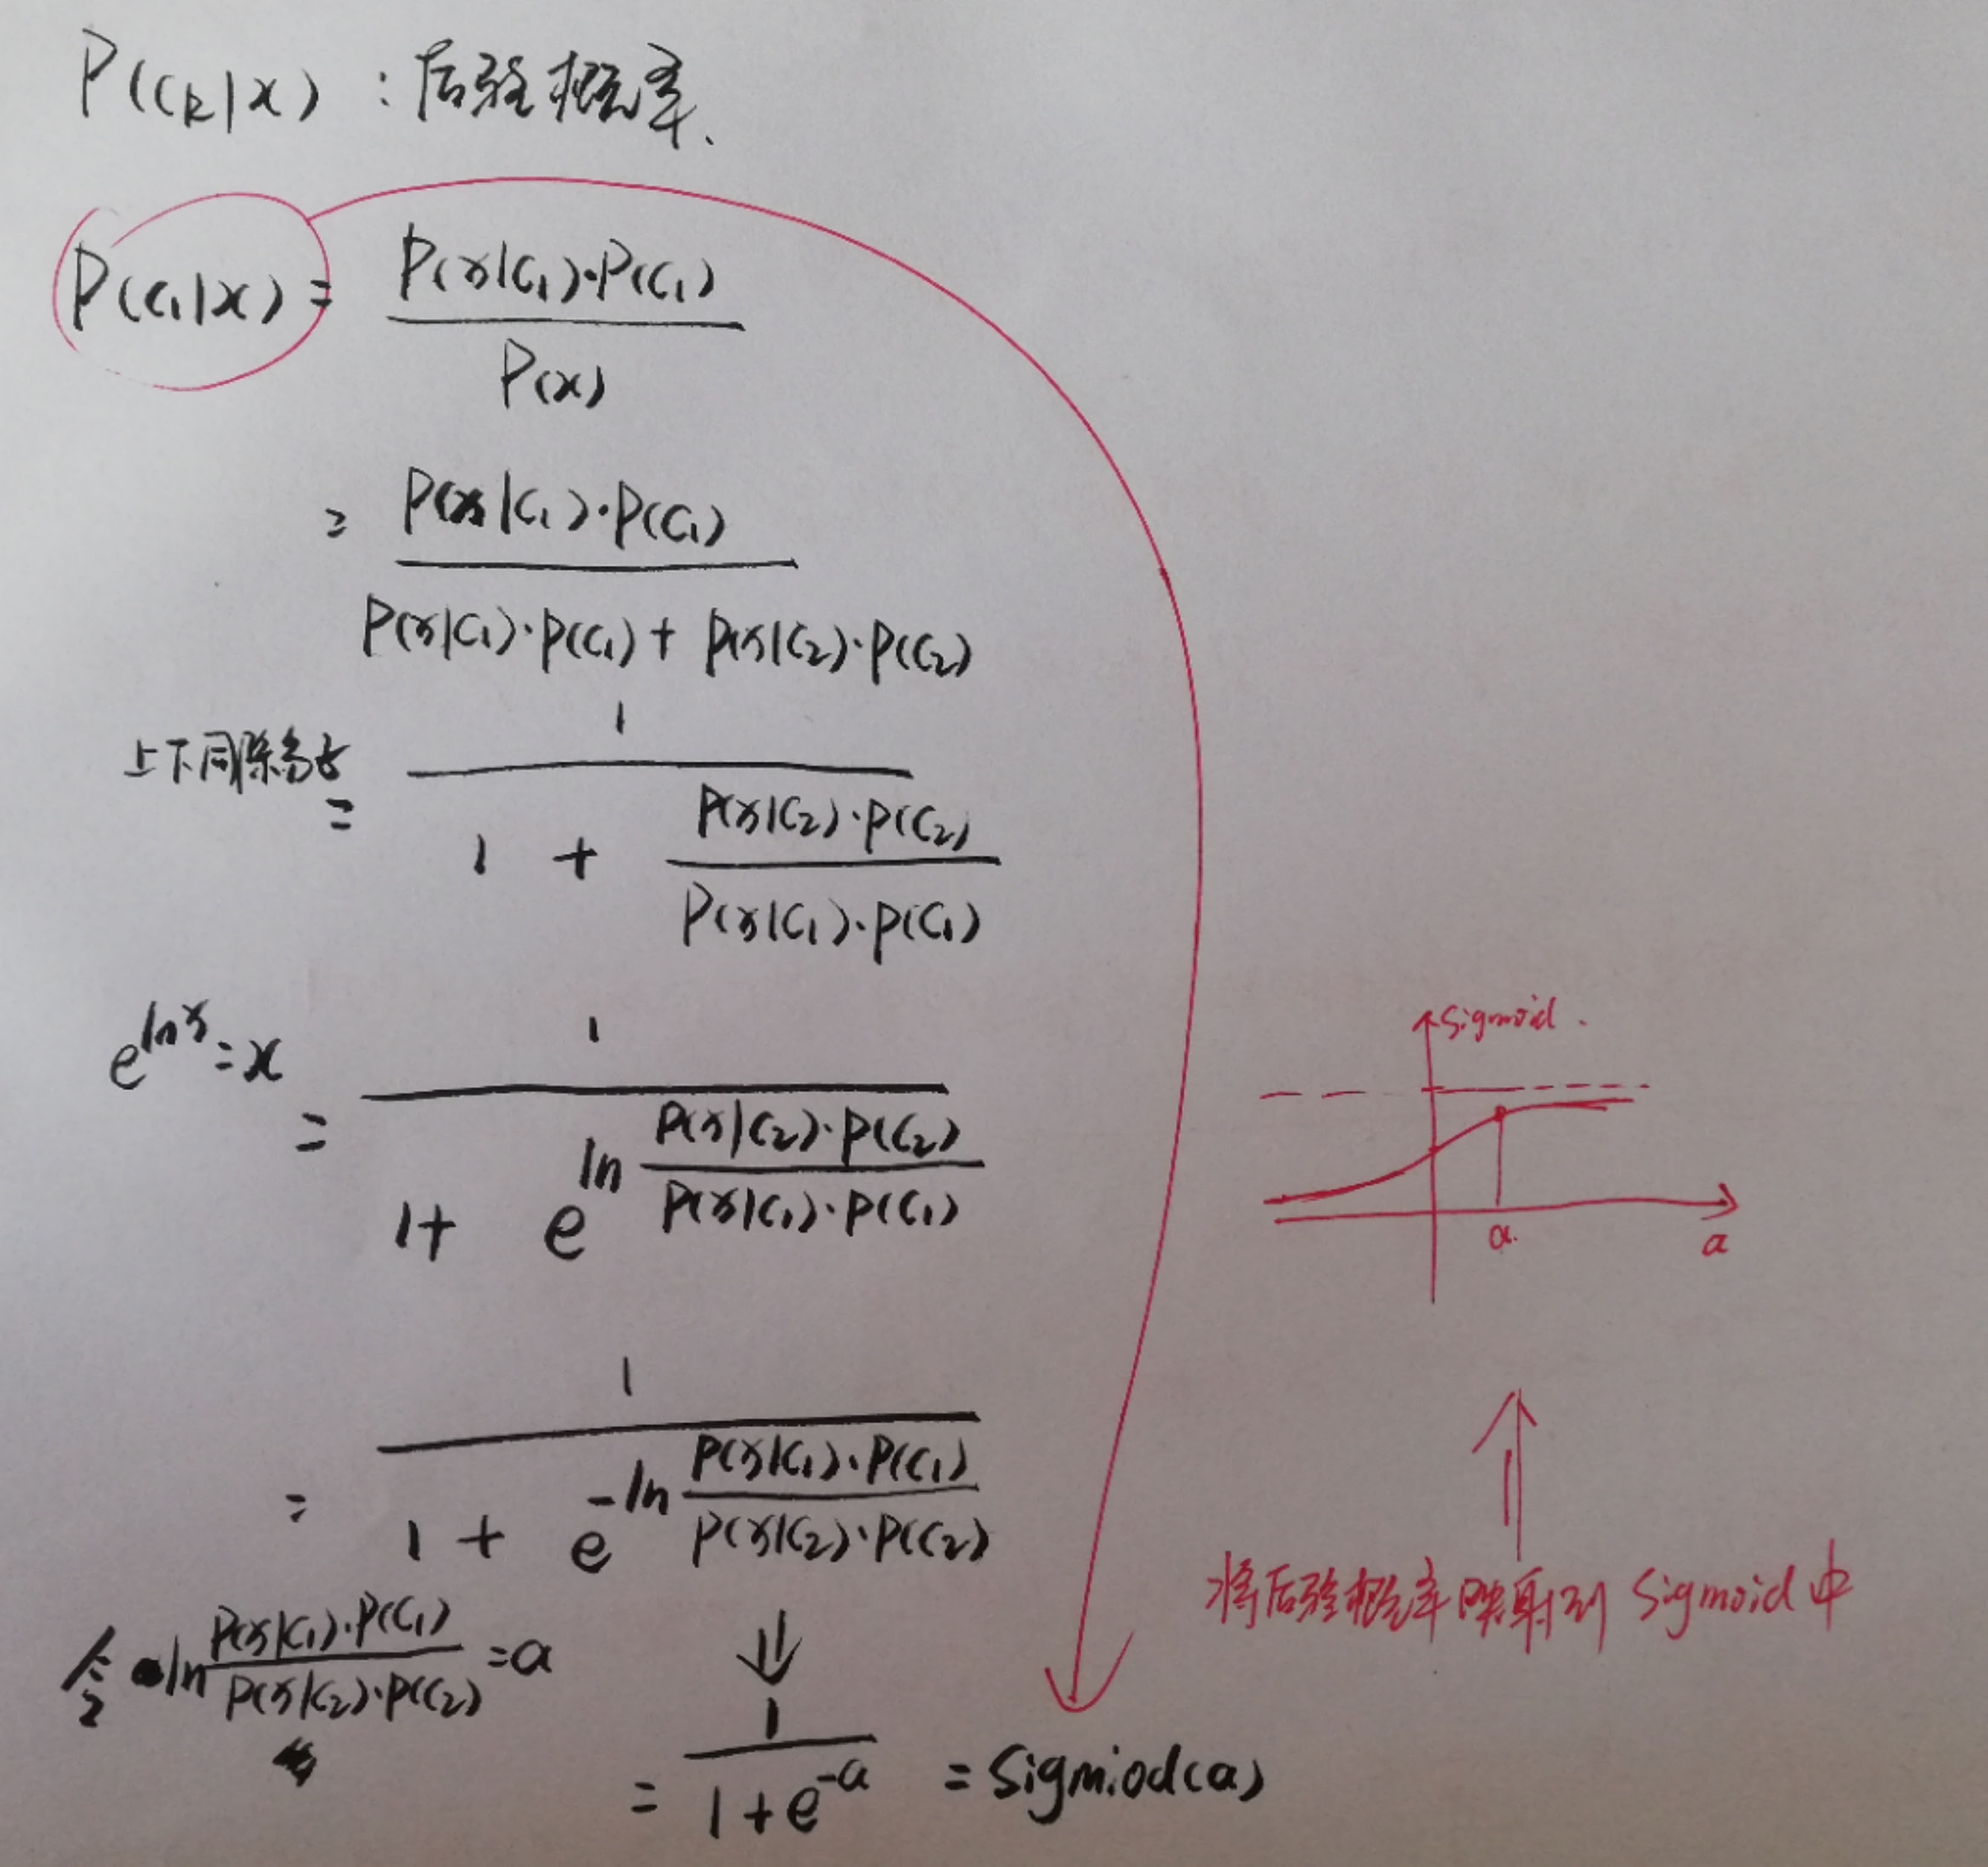 P(Ck|x) : 后验概率.
P(C1|x) = P(x|C1)·P(C1) / P(x)
= P(x|C1)·P(C1) / P(x|C1)·P(C1) + P(x|C2)·P(C2)
上下同除分子
= 1 / 1 + P(x|C2)·P(C2) / P(x|C1)·P(C1)
e^lnx = x
= 1 / 1 + e^ln P(x|C2)·P(C2) / P(x|C1)·P(C1)
= 1 / 1 + e^-ln P(x|C1)·P(C1) / P(x|C2)·P(C2)
令 ln P(x|C1)·P(C1) / P(x|C2)·P(C2) = a
⇓
= 1 / 1 + e^-a = Sigmiod(a)
Sigmoid.
a.
a
将后验概率映射到 Sigmoid 中